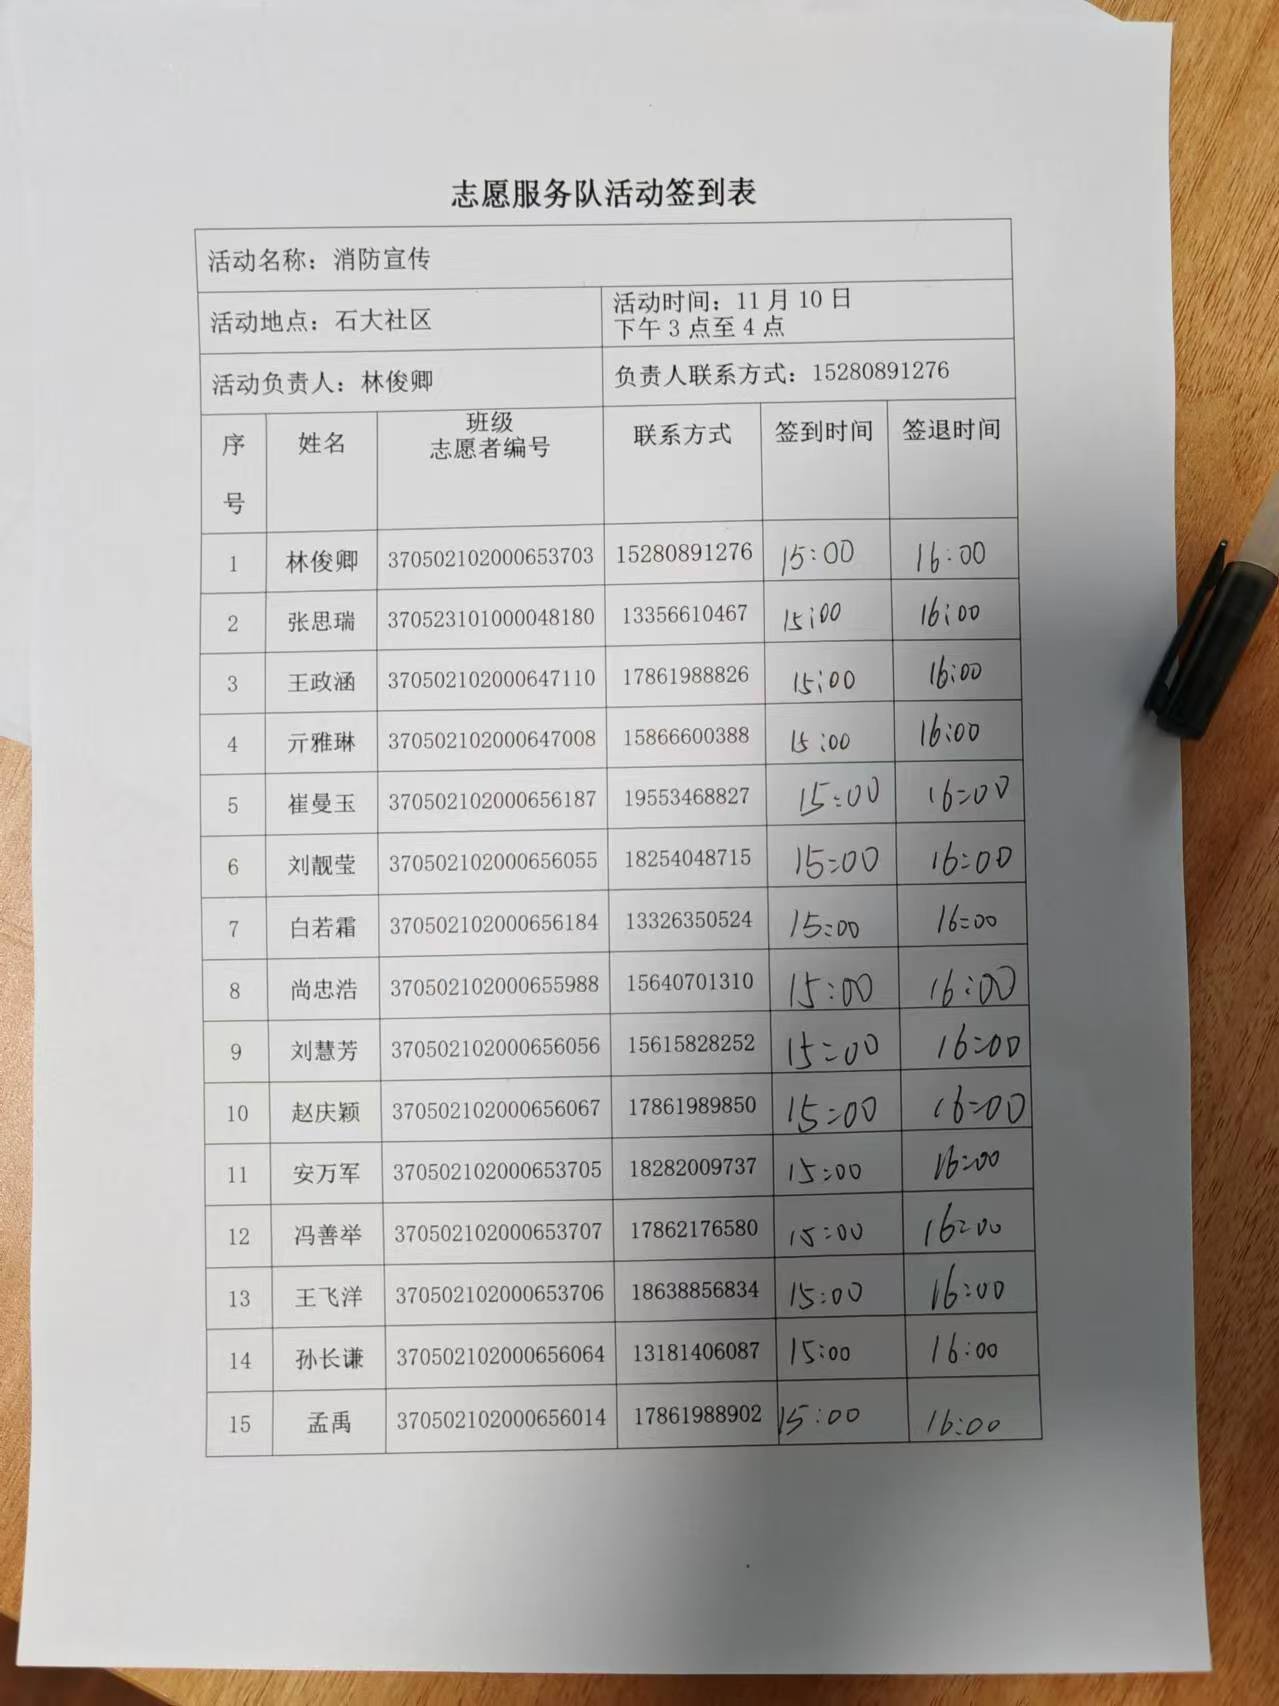 志愿服务队活动签到表
活动名称：消防宣传
活动地点：石大社区 活动时间：11月10日
下午3点至4点
活动负责人：林俊卿 负责人联系方式：15280891276
序号 姓名 班级 联系方式 签到时间 签退时间
志愿者编号
1 林俊卿 370502102000653703 15280891276 15:00 16:00
2 张思瑞 370523101000048180 13356610467 15:00 16:00
3 王政涵 370502102000647110 17861988826 15:00 16:00
4 亓雅琳 370502102000647008 15866600388 15:00 16:00
5 崔曼玉 370502102000656187 19553468827 15:00 16:00
6 刘靓莹 370502102000656055 18254048715 15:00 16:00
7 白若霜 370502102000656184 13326350524 15:00 16:00
8 尚忠浩 370502102000655988 15640701310 15:00 16:00
9 刘慧芳 370502102000656056 15615828252 15:00 16:00
10 赵庆颖 370502102000656067 17861989850 15:00 16:00
11 安万军 370502102000653705 18282009737 15:00 16:00
12 冯善举 370502102000653707 17862176580 15:00 16:00
13 王飞洋 370502102000653706 18638856834 15:00 16:00
14 孙长谦 370502102000656064 13181406087 15:00 16:00
15 孟禹 370502102000656014 17861988902 15:00 16:00